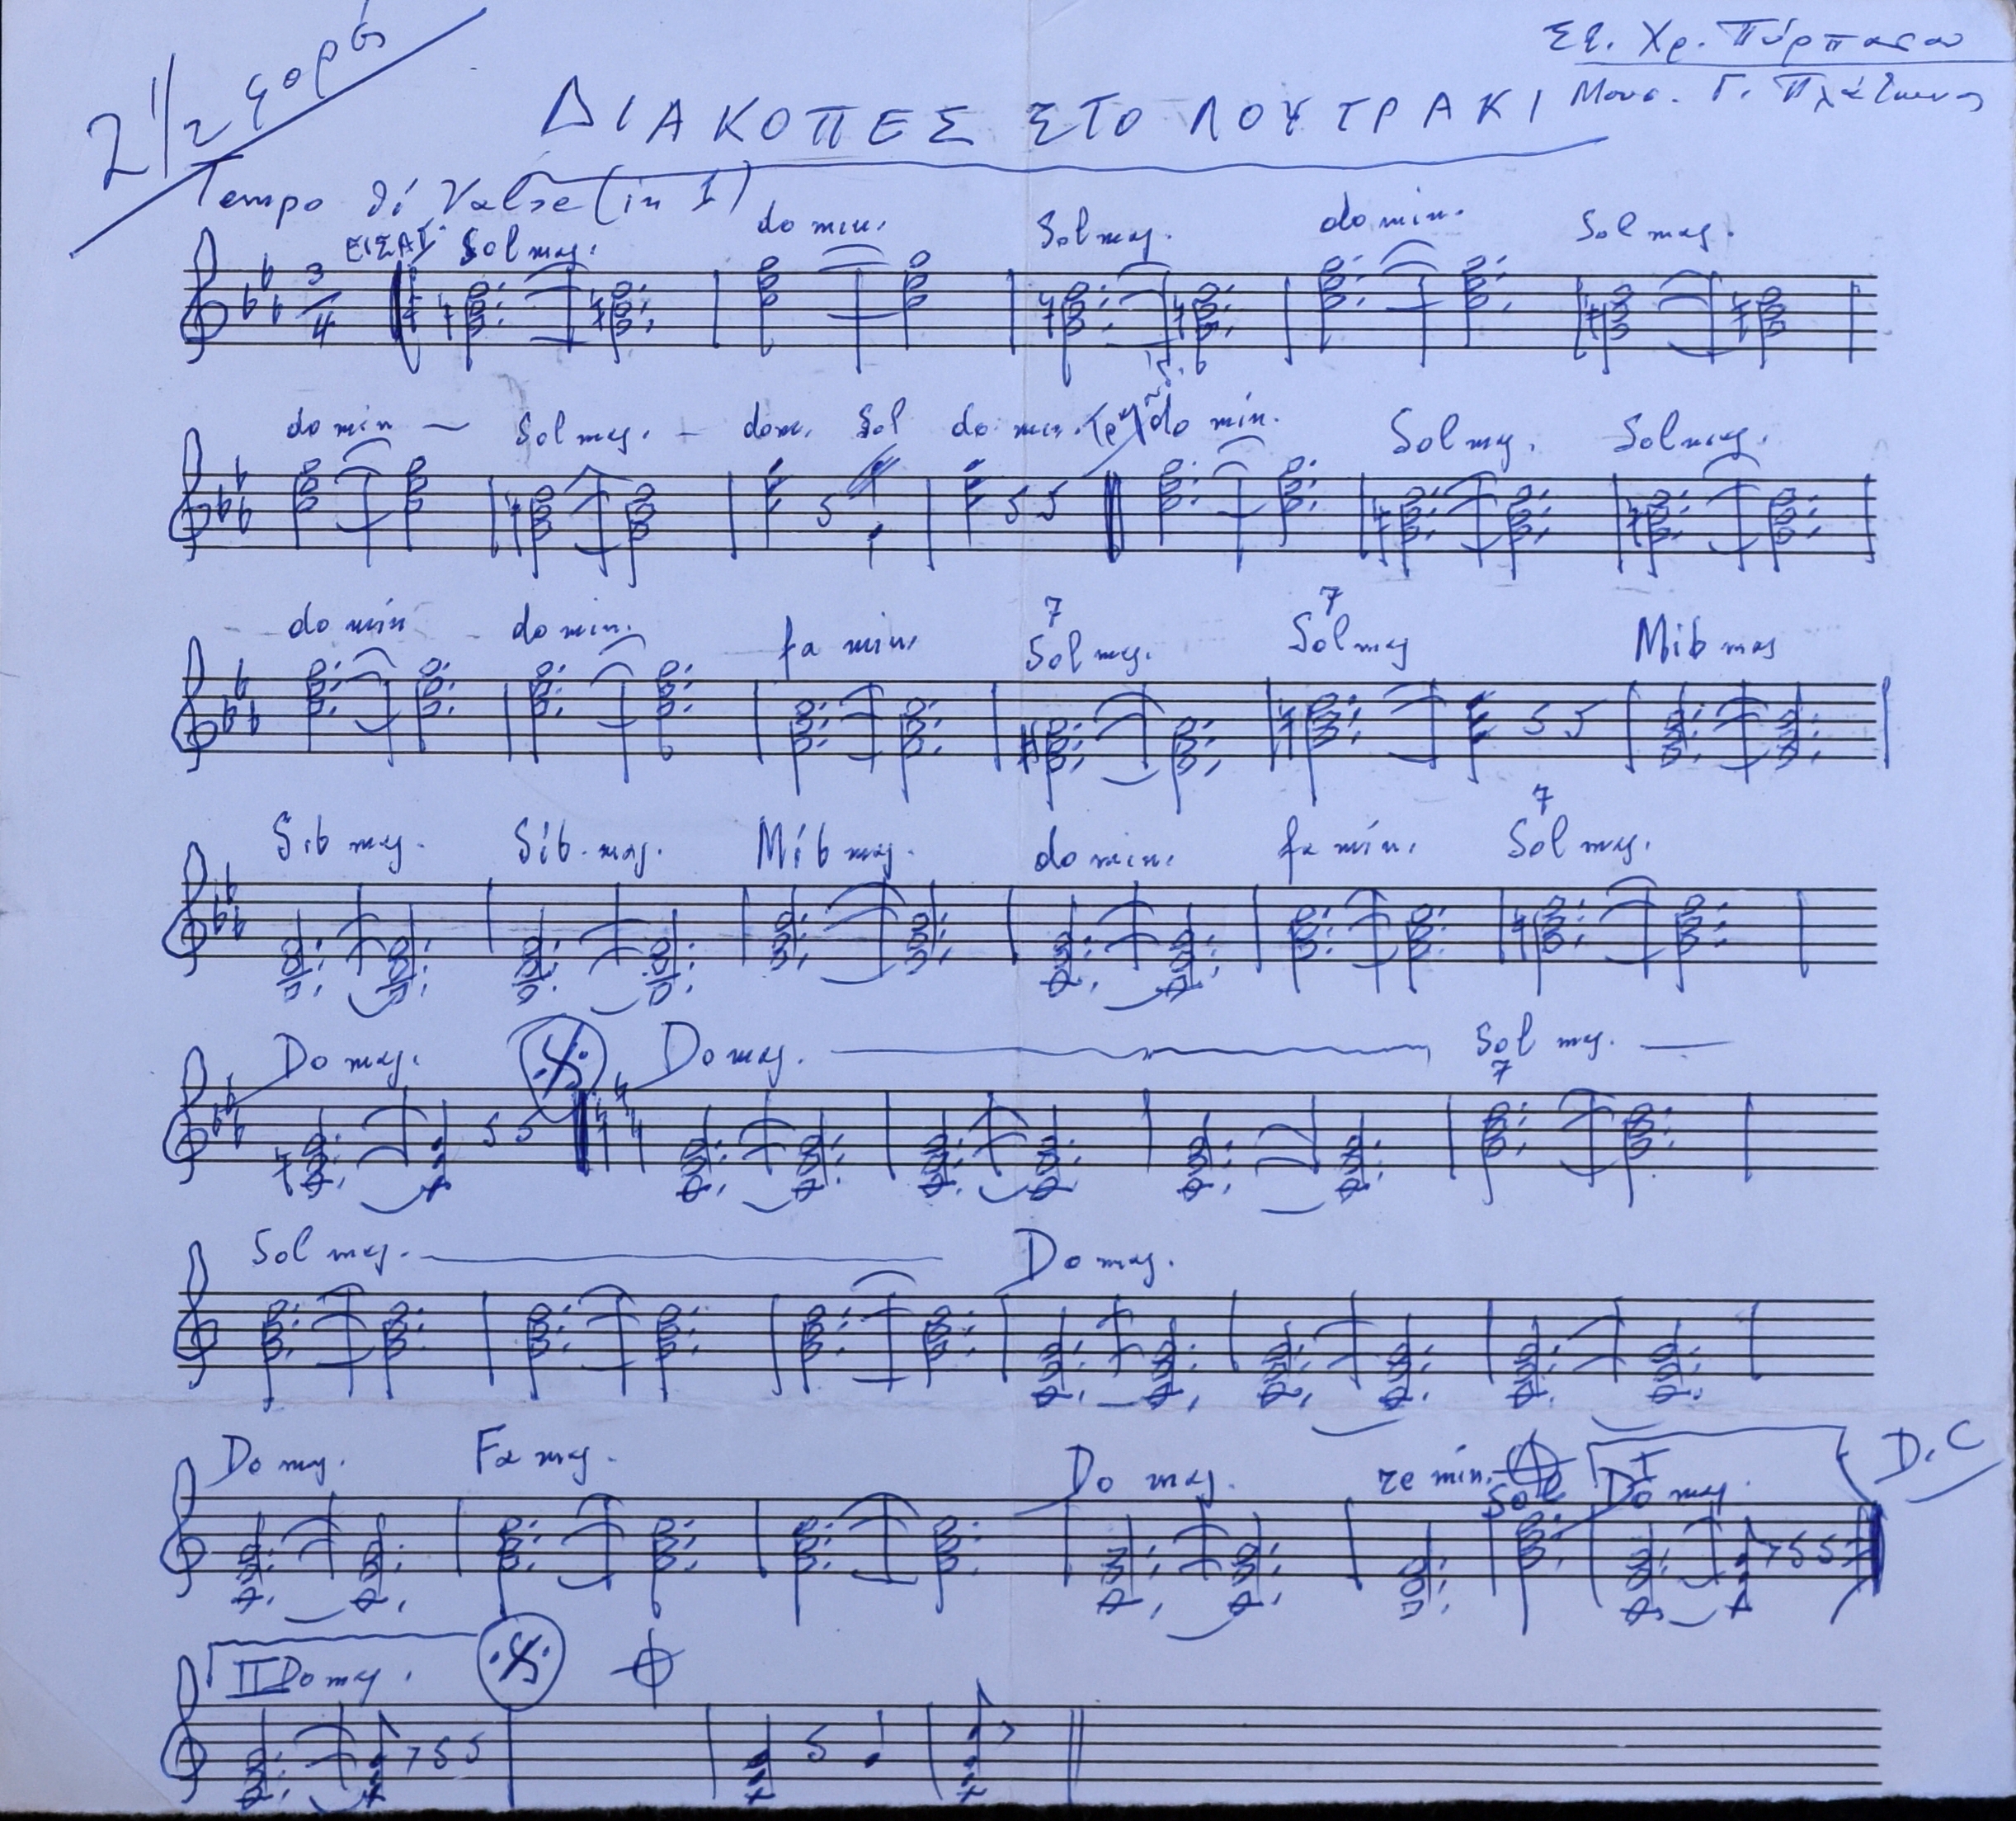 2 1/2 φορές
Στ. Χρ. Πύρπασου
Μουσ. Γ. Πλάτωνος
ΔΙΑΚΟΠΕΣ ΣΤΟ ΛΟΥΤΡΑΚΙ
Tempo di Valse (in 1)
ΕΙΣΑΓ. Sol maj. do min. Sol maj. do min. Sol maj.
3/4
do min Sol maj. dom. Sol do min. do min. Sol maj. Sol maj.
do min do min. fa min. 7 Sol maj. 7 Sol maj Mib maj
Sib maj. Sib maj. Mib maj. do min. fa min. 7 Sol maj.
Do maj. Do maj. Sol maj. 7
Sol maj. Do maj.
Do maj. Fa maj. Do maj. re min. Sol I Do maj. D.C
II Do maj.